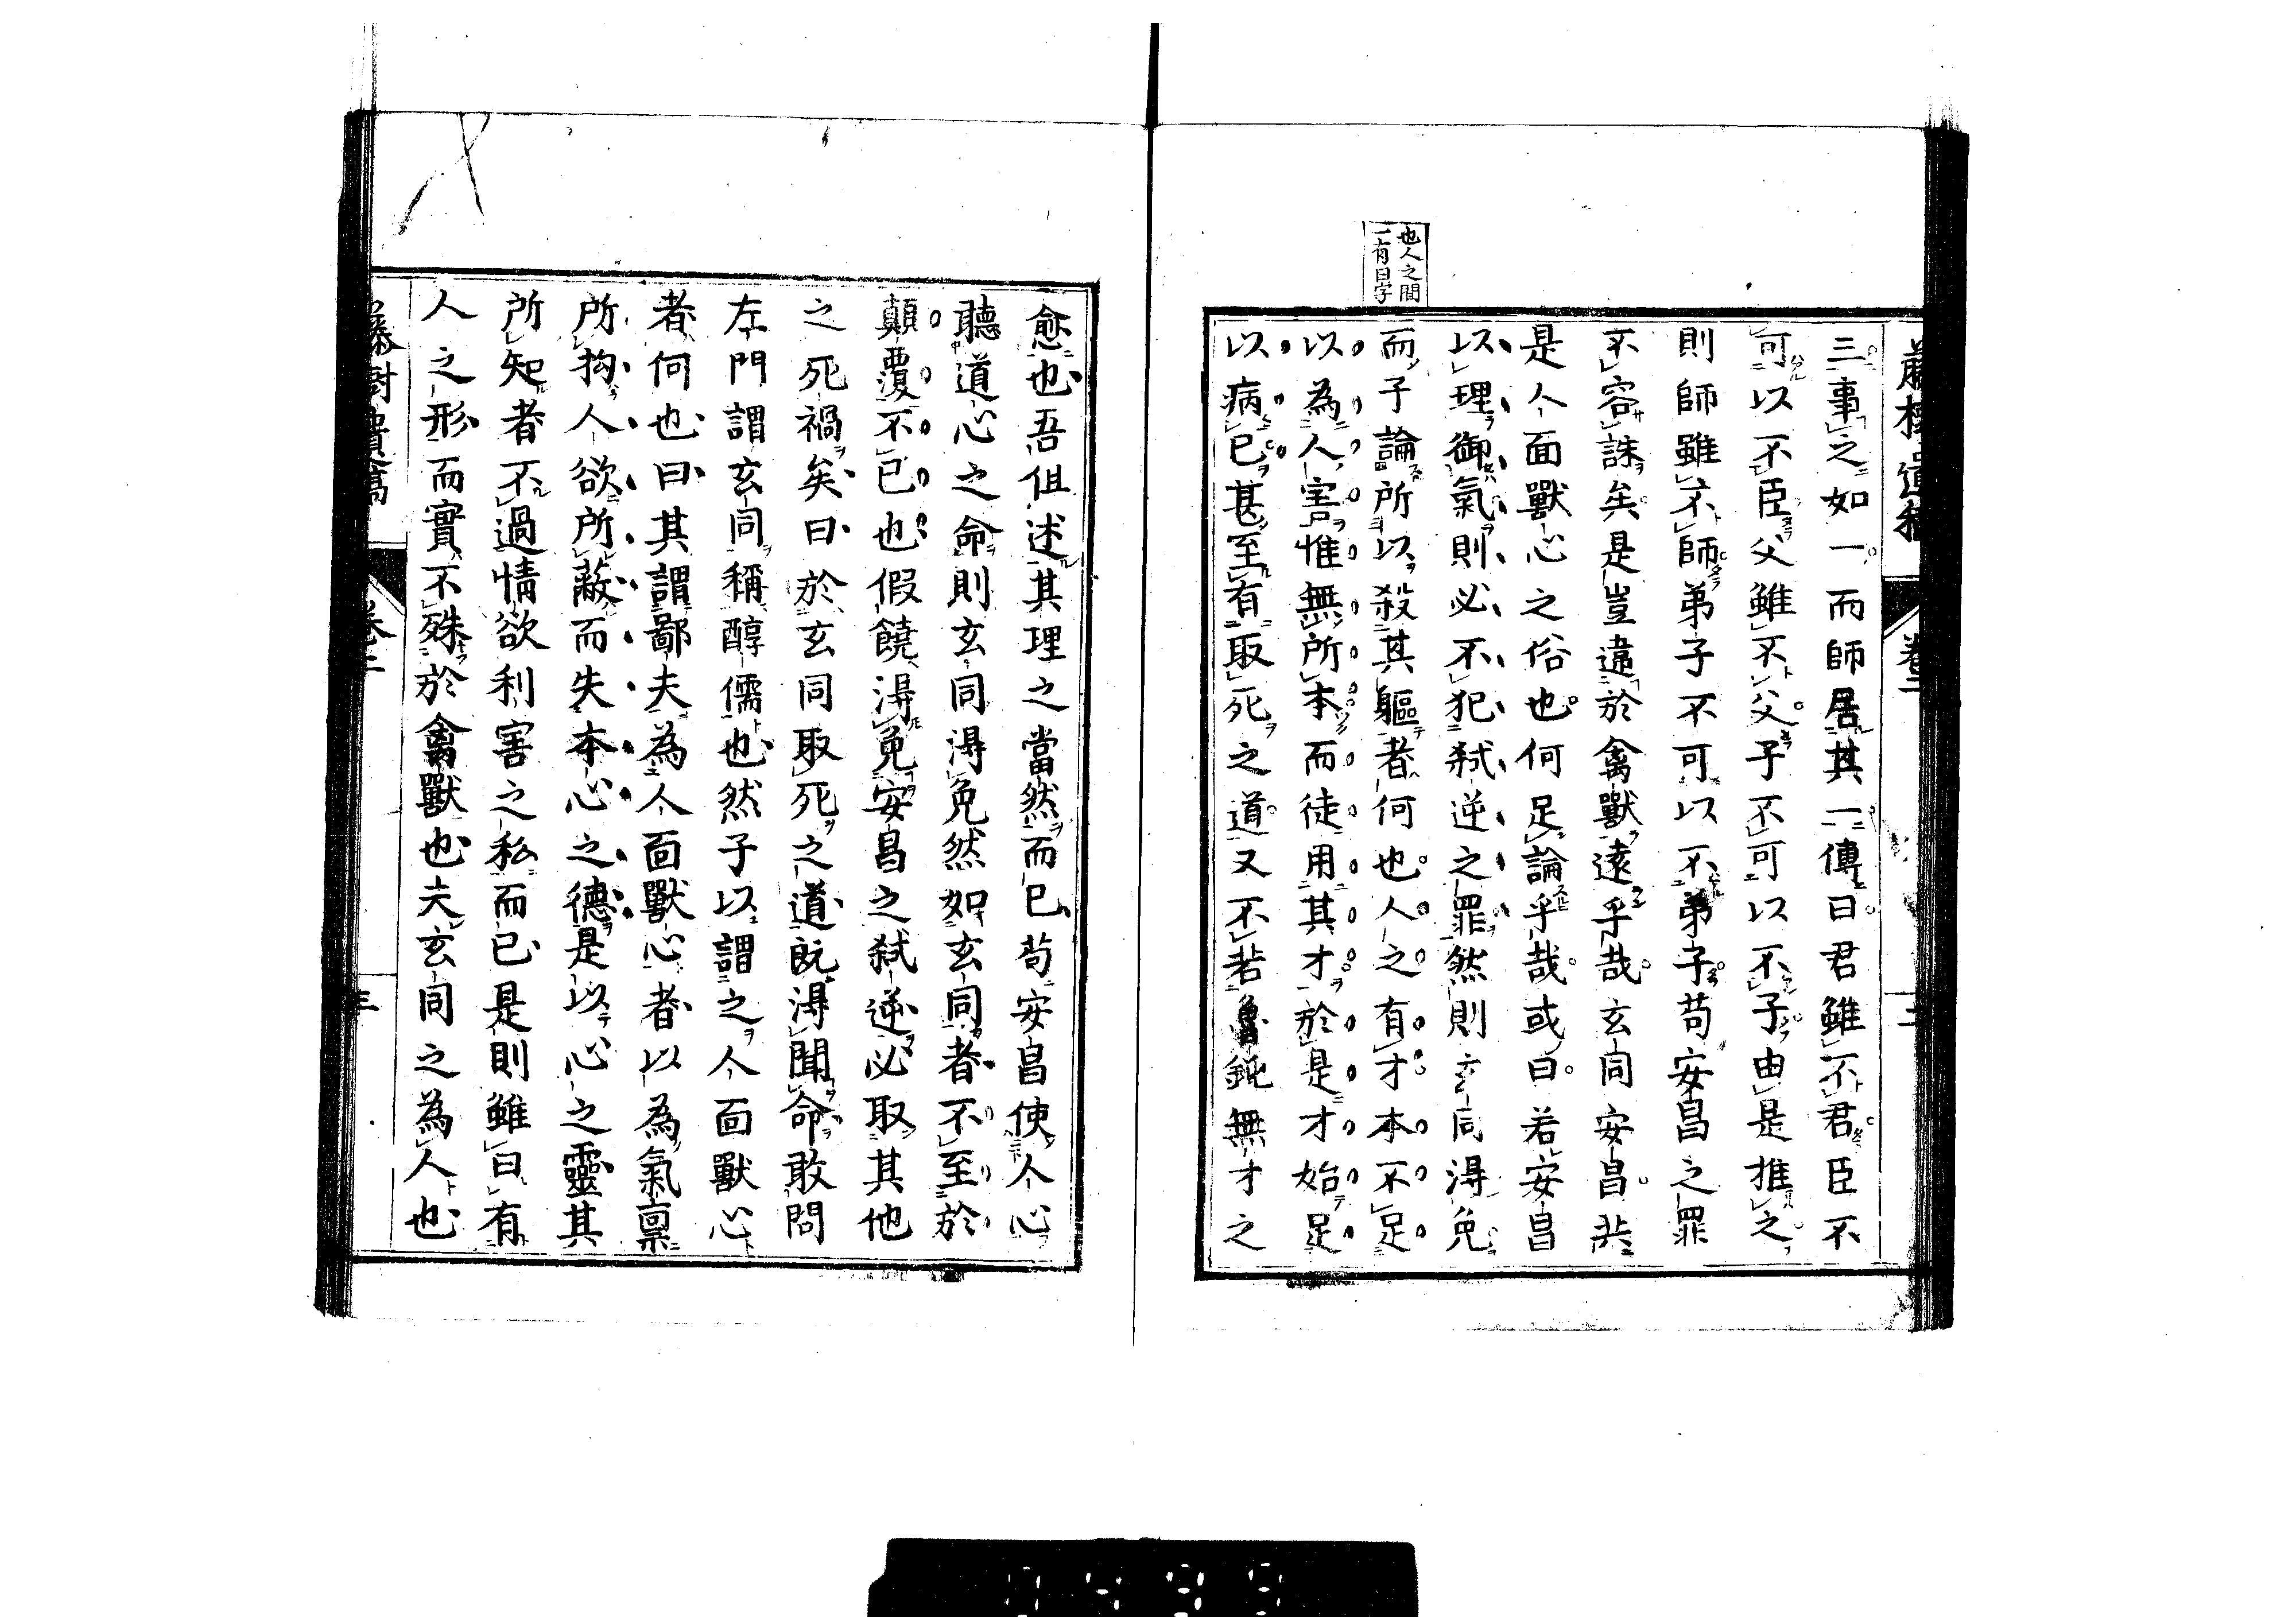 三事之如一而師居其一傳曰君雖不君臣不
可以不臣父雖不父子不可以不子由是推之
則師雖不師弟子不可以不弟子苟安昌之罪
不容誅矣是豈違於禽獸遠乎哉玄同安昌共
是人面獸心之俗也何足論乎哉或曰若安昌
以理御氣則必不犯弑逆之罪然則玄同得免
而子論所以殺其軀者何也人之有才本不足
以為人害惟無所本而徒用其才於是才始足
以病已甚至有取死之道又不若魯鈍無才之
也人之間
一有曰字
卷二
二
愈也吾但述其理之當然而已苟安昌使人心
聽道心之命則玄同得免然如玄同者不至於
顛覆不已也假饒得免安昌之弑逆必取其他
之死禍矣曰於玄同取死之道既得聞命敢問
左門謂玄同稱醇儒也然子以謂之人面獸心
者何也曰其謂鄙夫為人面獸心者以為氣稟
所拘人欲所蔽而失本心之德是以心之靈其
所知者不過情欲利害之私而已是則雖曰有
人之形而實不殊於禽獸也夫玄同之為人也
卷二
三